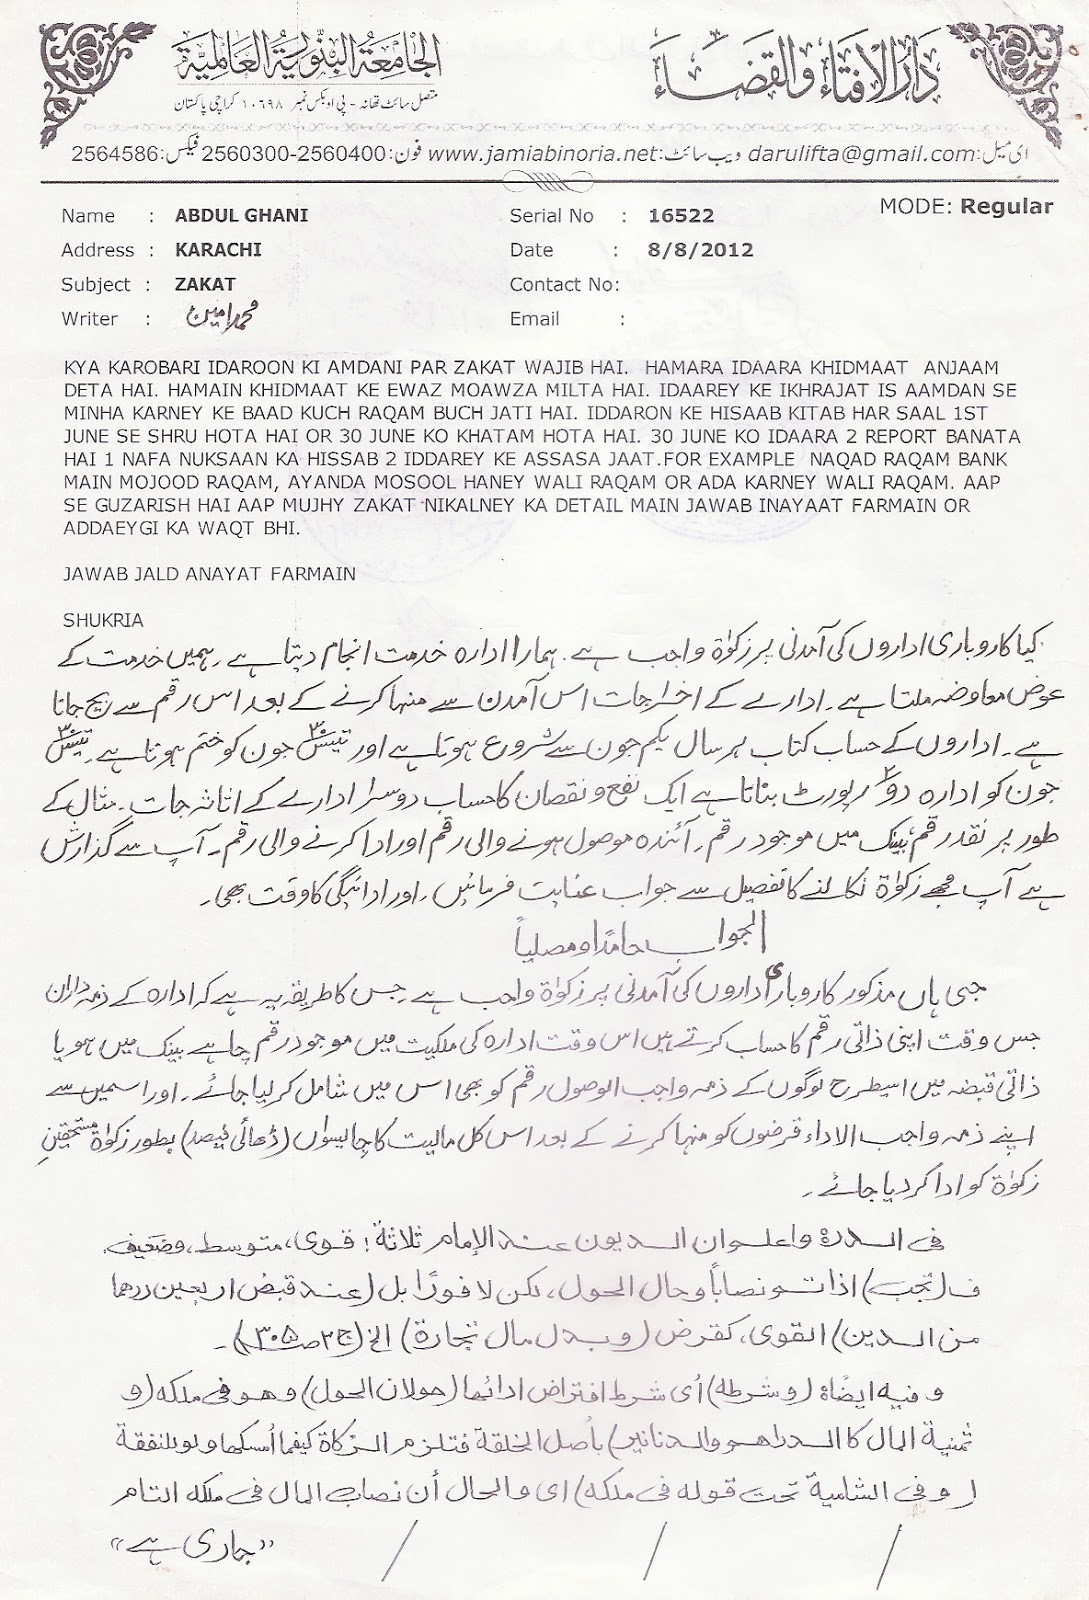 الجامعۃ البنوریۃ العالمیۃ
دار الافتاء والقضاء
متصل سائٹ تھانہ - پی او بکس نمبر ۱۰۶۹۸ کراچی پاکستان
ای میل: darulifta@gmail.com ویب سائٹ: www.jamiabinoria.net فون: 2560300-2560400 فیکس: 2564586
MODE: Regular
Name : ABDUL GHANI Serial No : 16522
Address : KARACHI Date : 8/8/2012
Subject : ZAKAT Contact No:
Writer : محمد امین Email :
KYA KAROBARI IDAROON KI AMDANI PAR ZAKAT WAJIB HAI. HAMARA IDAARA KHIDMAAT ANJAAM
DETA HAI. HAMAIN KHIDMAAT KE EWAZ MOAWZA MILTA HAI. IDAAREY KE IKHRAJAT IS AAMDAN SE
MINHA KARNEY KE BAAD KUCH RAQAM BUCH JATI HAI. IDDARON KE HISAAB KITAB HAR SAAL 1ST
JUNE SE SHRU HOTA HAI OR 30 JUNE KO KHATAM HOTA HAI. 30 JUNE KO IDAARA 2 REPORT BANATA
HAI 1 NAFA NUKSAAN KA HISSAB 2 IDDAREY KE ASSASA JAAT.FOR EXAMPLE NAQAD RAQAM BANK
MAIN MOJOOD RAQAM, AYANDA MOSOOL HANEY WALI RAQAM OR ADA KARNEY WALI RAQAM. AAP
SE GUZARISH HAI AAP MUJHY ZAKAT NIKALNEY KA DETAIL MAIN JAWAB INAYAAT FARMAIN OR
ADDAEYGI KA WAQT BHI.
JAWAB JALD ANAYAT FARMAIN
SHUKRIA
کیا کاروباری اداروں کی آمدنی پر زکوٰۃ واجب ہے۔ ہمارا ادارہ خدمت انجام دیتا ہے۔ ہمیں خدمت کے
عوض معاوضہ ملتا ہے۔ ادارے کے اخراجات اس آمدن سے منہا کرنے کے بعد اس رقم سے بچ جاتا
ہے۔ اداروں کے حساب کتاب ہر سال یکم جون سے شروع ہوتا ہے اور تیس۳۰ جون کو ختم ہوتا ہے۔ تیس۳۰
جون کو ادارہ دو۲ رپورٹ بناتا ہے ایک نفع و نقصان کا حساب دوسرا ادارے کے اثاثہ جات۔ مثال کے
طور پر نقد رقم، بینک میں موجود رقم۔ آئندہ موصول ہونے والی رقم اور ادا کرنے والی رقم۔ آپ سے گذارش
ہے آپ مجھے زکوٰۃ نکالنے کا تفصیل سے جواب عنایت فرمائیں۔ اور ادائیگی کا وقت بھی۔
الجواب حامدًا و مصلیاً
جی ہاں مذکور کاروباری اداروں کی آمدنی پر زکوٰۃ واجب ہے۔ جس کا طریقہ یہ ہے کہ ادارہ کے ذمہ داران
جس وقت اپنی ذاتی رقم کا حساب کرتے ہیں اس وقت ادارہ کی ملکیت میں موجود رقم چاہے بینک میں ہو یا
ذاتی قبضہ میں اسیطرح لوگوں کے ذمہ واجب الوصول رقم کو بھی اس میں شامل کر لیا جائے۔ اور اسمیں سے
اپنے ذمہ واجب الاداء قرضوں کو منہا کرنے کے بعد اس کل مالیت کا چالیسواں (ڈھائی فیصد) بطور زکوٰۃ مستحقینِ
زکوٰۃ کو ادا کر دیا جائے۔
فی الدرۃ واعلم ان الدیون عند الإمام ثلاثۃ! قوی، متوسط، وضعیف۔
فـ(تجب) اذا تم نصاباً وحال الحول، لکن لا فورًا بل (عند قبض اربعین درهما
من الدین) القوی، کقرض (وبدل مال تجارۃ) الخ (ج۲ ص۳۰۵)۔
و فیه ایضاۃ (وشرطه) أی شرط افتراض ادائها (حولان الحول) وهو فی ملکه (و
ثمنیۃ المال کالدراهم والدنانیر) بأصل الخلقۃ فتلزم الزکاۃ کیفما أمسکها ولو للنفقۃ
(وفی الشامیۃ تحت قوله فی ملکه) ای والحال أن نصاب المال فی ملکه التام
”جاری ہے“